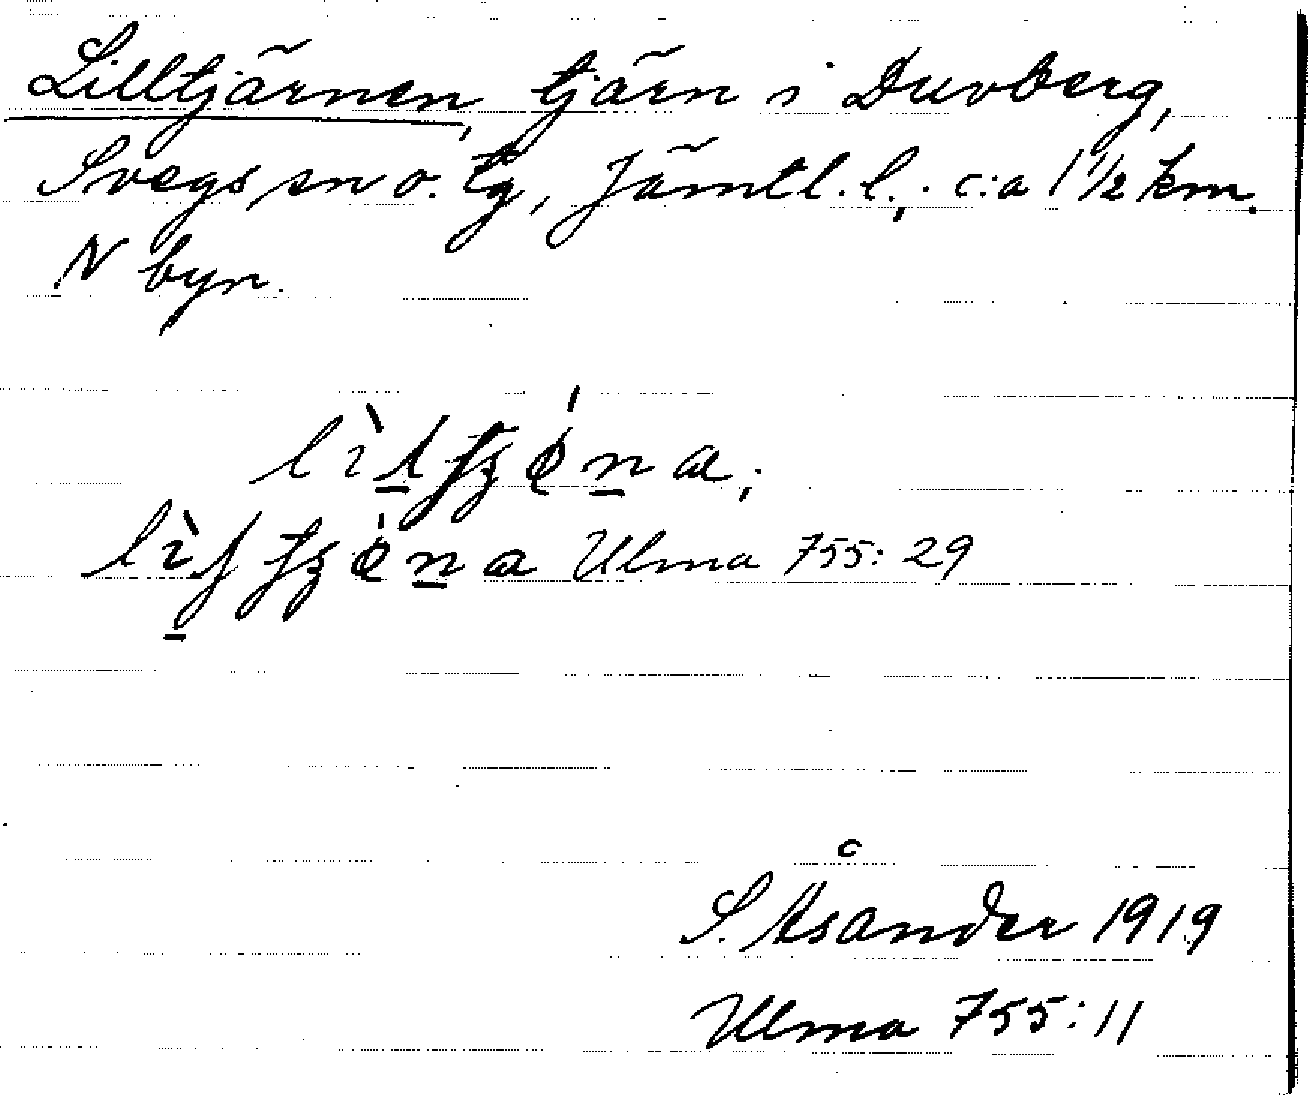 Lilltjärnen, tjärn i Duvberg,
Svegs sn o. tg, Jämtl. l., c:a 1 1/2 km.
N byn.
Ulma 755: 29
S. Åsander 1919
Ulma 755: 11